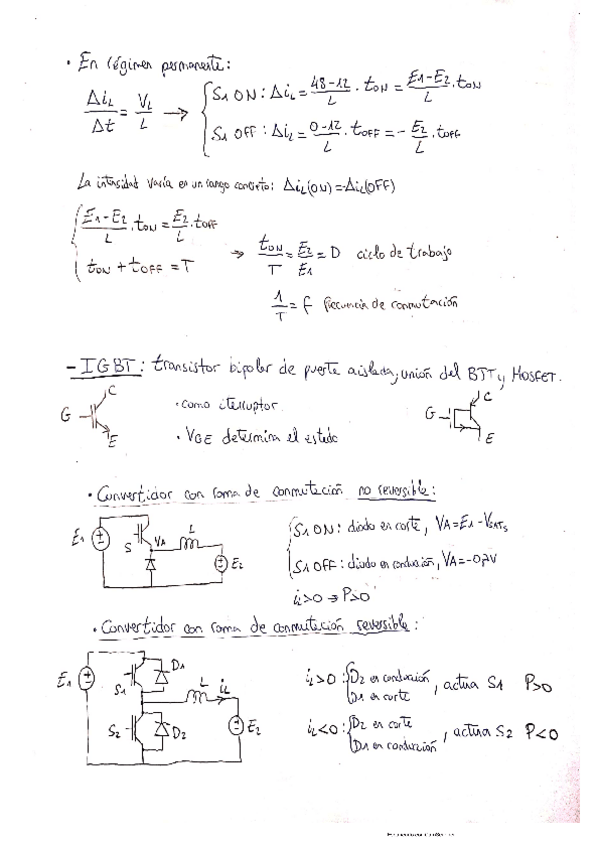 · En régimen permanente:
ΔiL/Δt = VL/L → { S1 ON: ΔiL = (48-12)/L · tON = (E1-E2)/L · tON
S1 OFF: ΔiL = (0-12)/L · tOFF = - E2/L · tOFF
La intensidad varía en un rango concreto: ΔiL(ON) = -ΔiL(OFF)
{ (E1-E2)/L · tON = E2/L · tOFF
tON + tOFF = T → tON/T = E2/E1 = D ciclo de trabajo
1/T = f frecuencia de conmutación
- IGBT: transistor bipolar de puerta aislada, unión del BJT y MOSFET.
G C E
· como iterruptor
· VGE determina el estado
G C E
· Convertidor con rama de conmutación no reversible:
E1 S VA L E2
{ S1 ON: diodo en corte, VA = E1 - VSATS
S1 OFF: diodo en conducción, VA = -0,7V
iL>0 → P>0
· Convertidor con rama de conmutación reversible:
E1 S1 D1 L iL S2 D2 E2
iL>0: { D2 en conducción
D1 en corte , actua S1 P>0
iL<0: { D2 en corte
D1 en conducción , actua S2 P<0